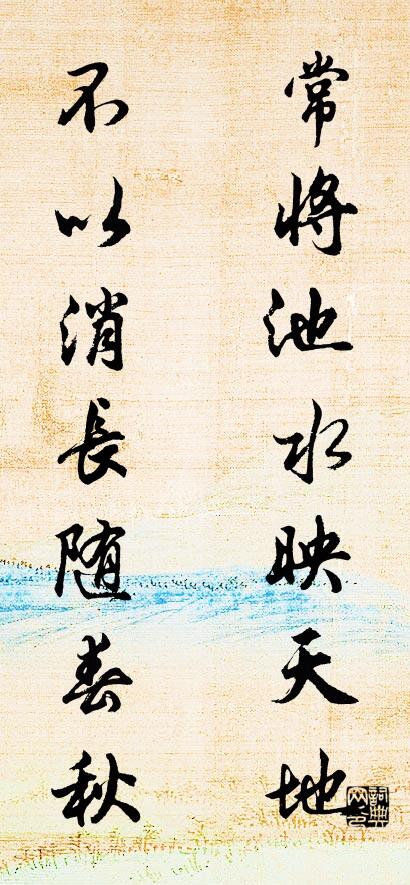 常将池水映天地
不以消長随春秋
詞典网